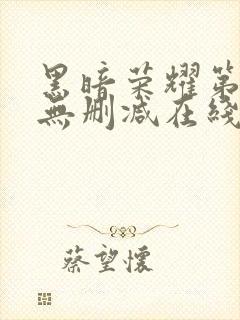 黑暗荣耀第
無删减在綫
蔡望懷